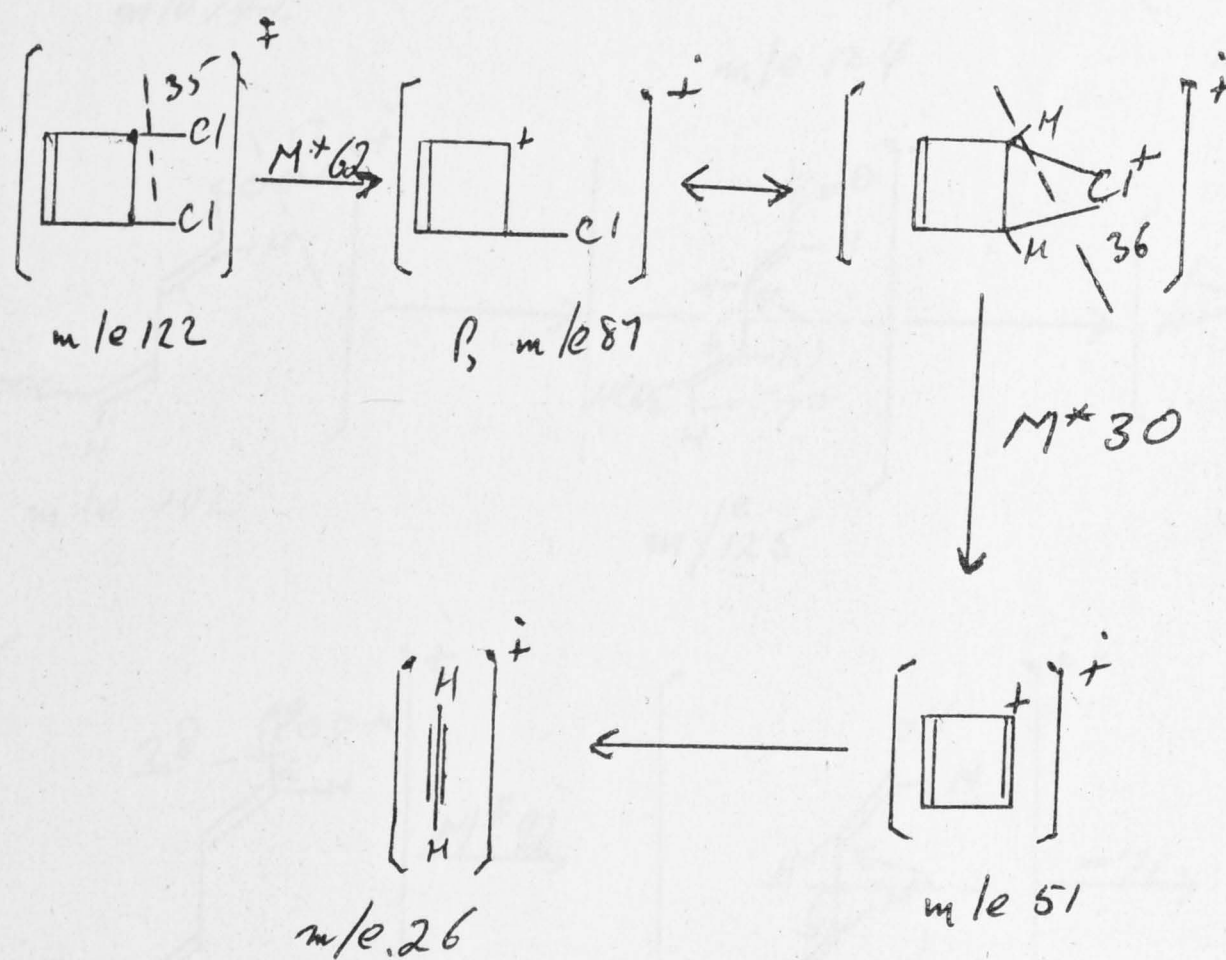 ‡
35
Cl
Cl
m/e 122
M*62
+
Cl
P, m/e 87
+
H
Cl+
H
36
+
M*30
+
m/e 51
+
H
H
m/e. 26